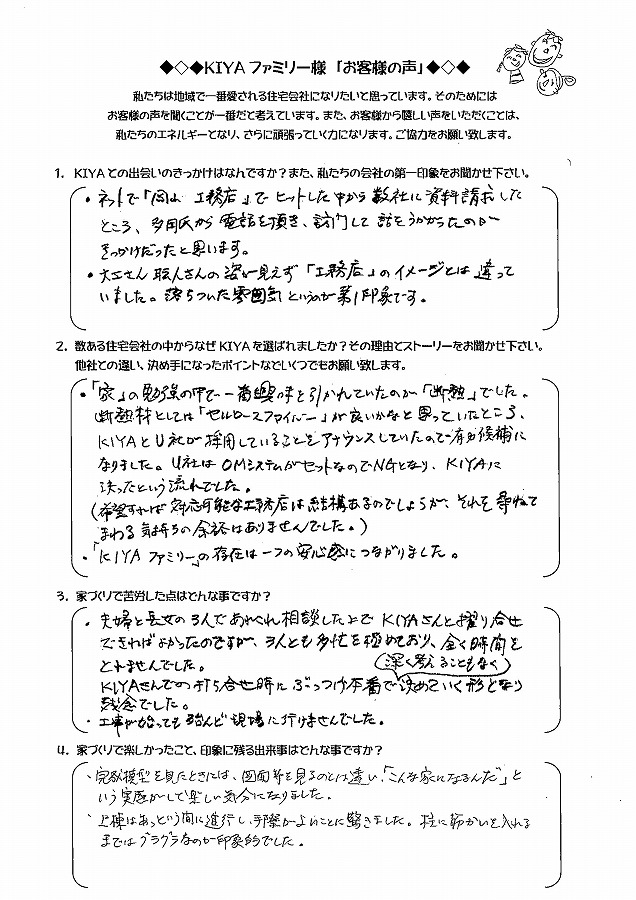 ◆◇◆KIYAファミリー様「お客様の声」◆◇◆
私たちは地域で一番愛される住宅会社になりたいと思っています。そのためには
お客様の声を聞くことが一番だと考えています。また、お客様から嬉しい声をいただくことは、
私たちのエネルギーとなり、さらに頑張っていく力になります。ご協力をお願い致します。
1. KIYAとの出会いのきっかけはなんですか？また、私たちの会社の第一印象をお聞かせ下さい。
・ネットで「岡山 工務店」でヒットした中から数社に資料請求した
ところ、多田氏から電話を頂き、訪問して話をうかがったのが
きっかけだったと思います。
・大工さん職人さんの姿が見えず「工務店」のイメージとは違って
いました。落ちついた雰囲気というのが第1印象です。
2. 数ある住宅会社の中からなぜKIYAを選ばれましたか？その理由とストーリーをお聞かせ下さい。
他社との違い、決め手になったポイントなどいくつでもお願い致します。
・「家」の勉強の中で一番興味を引かれていたのが「断熱」でした。
断熱材としては「セルロースファイバー」が良いかなと思っていたところ、
KIYAとU社が採用していることをアナウンスしていたので有力候補に
なりました。U社はOMシステムがセットなのでNGとなり、KIYAに
決ったという流れでした。
(希望すれば対応可能な工務店は結構あるのでしょうが、それを尋ねて
まわる気持ちの余裕はありませんでした。)
・「KIYAファミリー」の存在は一つの安心感につながりました。
3. 家づくりで苦労した点はどんな事ですか？
・夫婦と長女の3人であれこれ相談した上でKIYAさんと擦り合せ
できればよかったのですが、3人とも多忙を極めており、全く時間を
とれませんでした。
(深く考えることもなく)
KIYAさんでの打ち合せ時にぶっつけ本番で決めていく形となり
残念でした。
・工事が始っても殆んど現場に行けませんでした。
4. 家づくりで楽しかったこと、印象に残る出来事はどんな事ですか？
・完成模型を見たときには、図面等を見るのとは違い、「こんな家になるんだ」と
いう実感がして楽しい気分になりました。
・上棟はあっという間に進行し、手際がよいことに驚きました。柱に筋かいを入れる
まではグラグラなのが印象的でした。